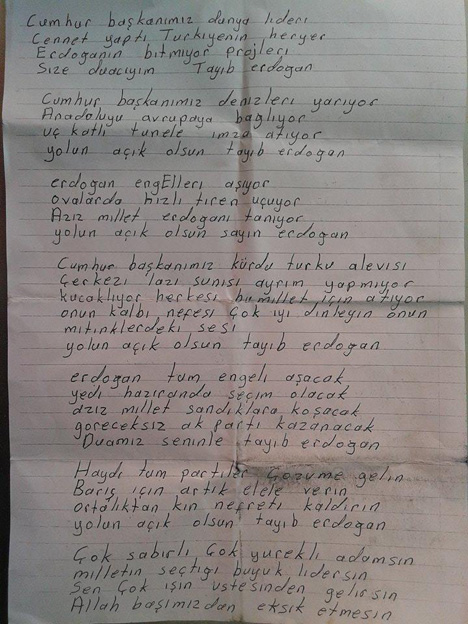 Cumhur başkanımız dunya liderı
Cennet yaptı Turkıyenin heryer
Erdoganın bıtmıyor projlerı
Sıze duacıyım Tayıb erdogan
Cumhur başkanımız denızlerı yarıyor
Anadoluyu avrupaya bağlıyor
uç katlı tunele ımza atıyor
yolun açık olsun tayıb erdogan
erdogan engEllerı aşıyor
ovalarda hızlı tıren uçuyor
Azız millet erdoganı tanıyor
yolun açık olsun sayın erdogan
Cumhur başkanımız kürdu turku alevısı
Çerkezı lazı sunısı ayrım yapmıyor
kucaklıyor herkesı bu millet ıçın atıyor
onun kalbı nefesı çok ıyı dınleyın onun
mıtınklerdekı sesı
yolun açık olsun tayıb erdogan
erdogan tum engelı aşacak
yedı hazıranda seçım olacak
azız millet sandıklara koşacak
goreceksız ak partı kazanacak
Duamız senınle tayıb erdogan
Haydı tum partıler Çozume gelın
Barış ıçın artık elele verın
ortalıktan kın nefretı kaldırın
yolun açık olsun tayıb erdogan
Çok sabırlı, Çok yureklı adamsın
mılletın seçtıgı buyuk lıdersın
Sen Çok ışın ustesınden gelırsın
Allah başımızdan eksık etmesın